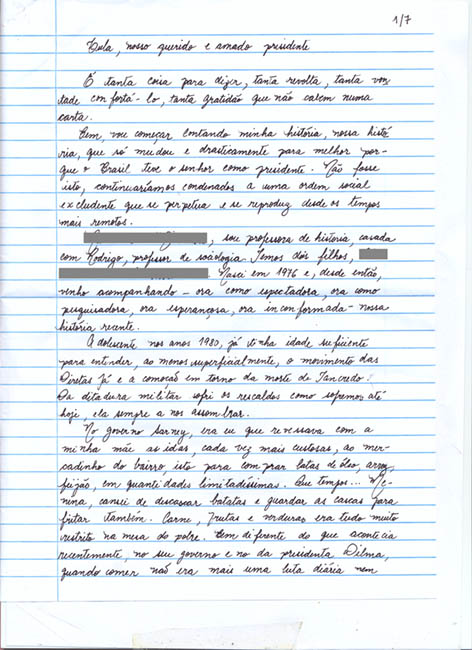 1/7
Lula, nosso querido e amado presidente
É tanta coisa para dizer, tanta revolta, tanta von
tade confortá-lo, tanta gratidão que não cabem numa
carta.
Bem, vou começar contando minha história, nossa histó
ria, que só mudou e drasticamente para melhor por-
que o Brasil teve o senhor como presidente. Não fosse
isto, continuaríamos condenados a uma ordem social
excludente que se perpetua e se reproduz desde os tempos
mais remotos.
, sou professora de história, casada
com Rodrigo, professor de sociologia. Temos dois filhos,
. Nasci em 1976 e, desde então,
venho acompanhando - ora como espectadora, ora como
pesquisadora, ora esperançosa, ora inconformada - nossa
história recente.
Adolescente nos anos 1980, já tinha idade suficiente
para entender, ao menos superficialmente, o movimento das
Diretas Já e a comoção em torno da morte de Tancredo.
Da ditadura militar sofri os rescaldos como sofremos até
hoje, ela sempre a nos assombrar.
No governo Sarney, era eu que revessava com a
minha mãe as idas, cada vez mais custosas, ao mer-
cadinho do bairro, isto para comprar latas de óleo, arroz,
feijão, em quantidades limitadíssimas. Que tempos... Me-
nina, cansei de descascar batatas e guardar as cascas para
fritar também. Carne, frutas e verduras era tudo muito
restrito na mesa do pobre. Bem diferente do que acontecia
recentemente, no seu governo e no da presidenta Dilma,
quando comer não era mais uma luta diária nem